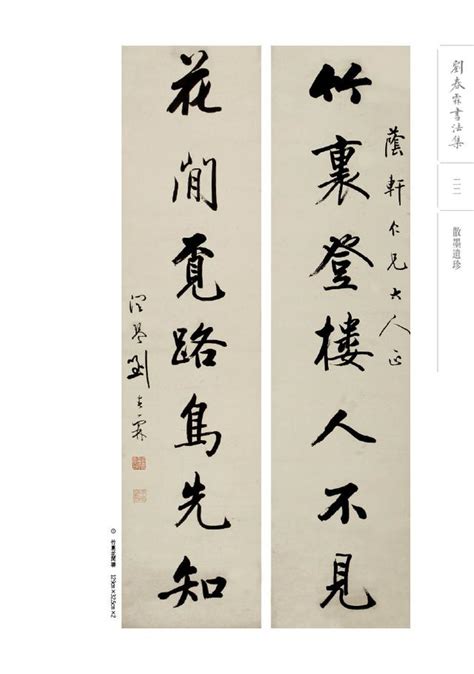 劉春霖書法集
二二
散墨遺珍
蔭軒仁兄大人正
竹裏登樓人不見
花間覓路鳥先知
潤琴劉春霖
竹裏花間聯 129cm×32.5cm×2